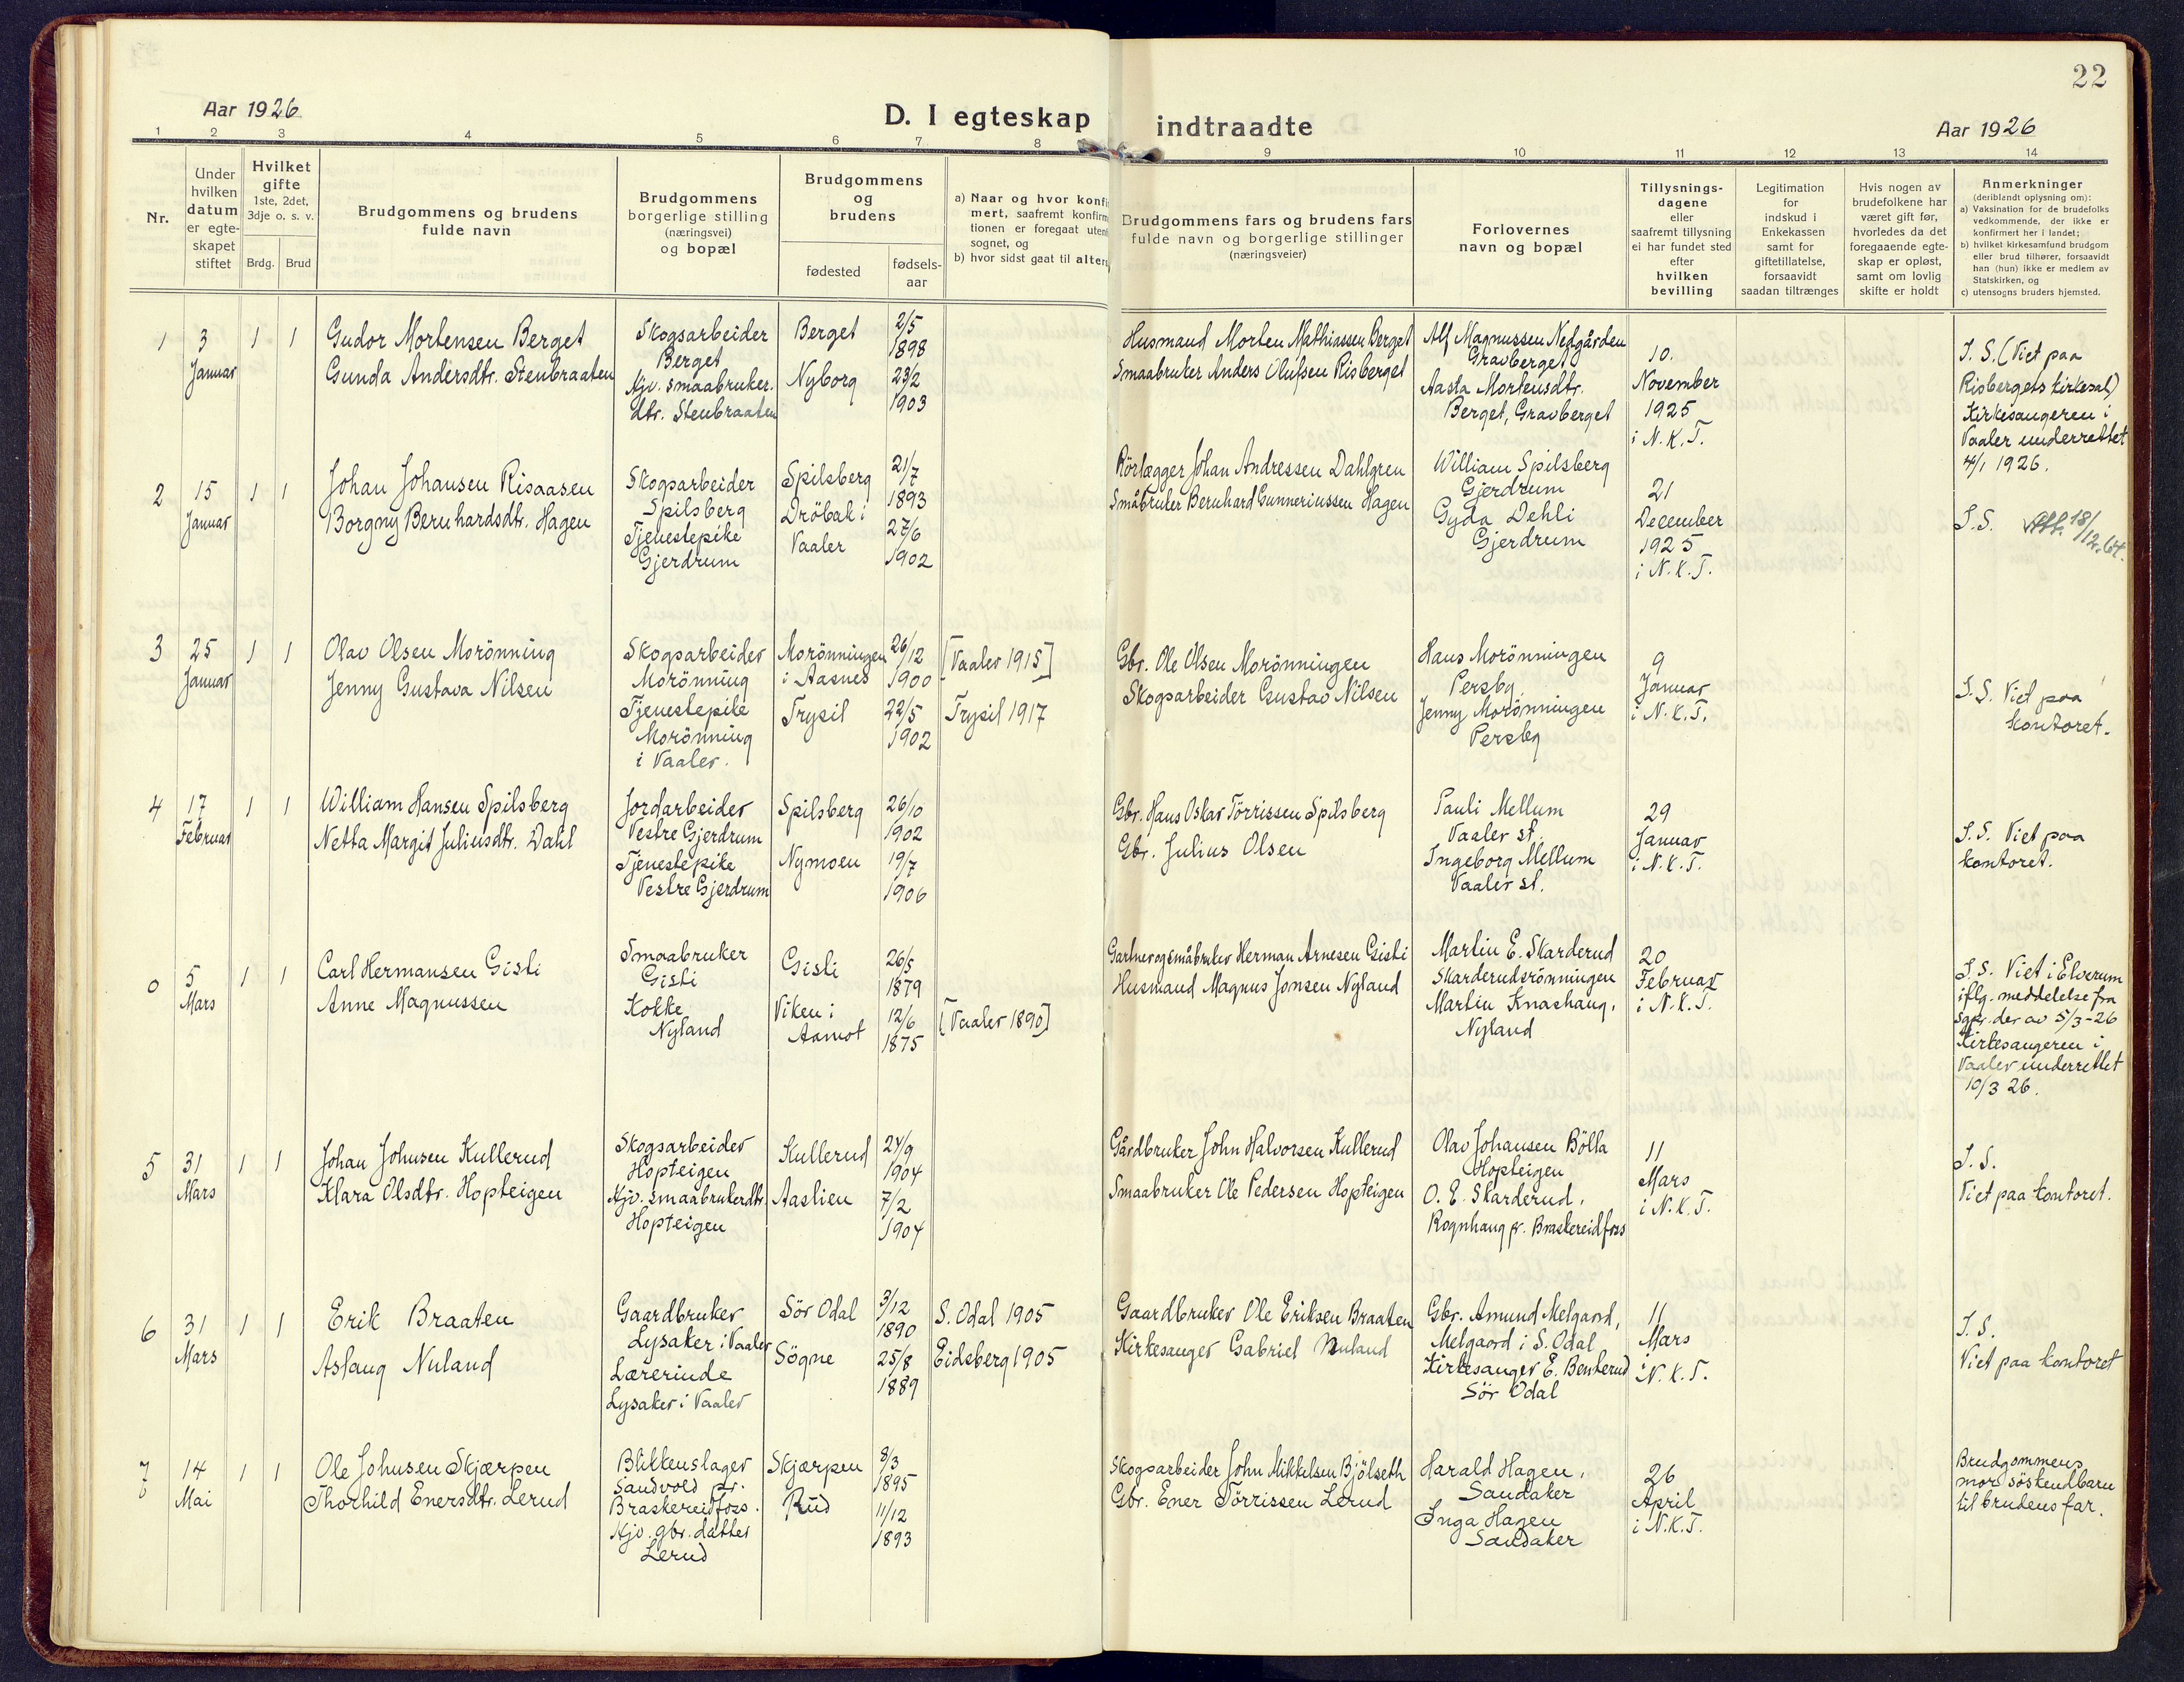 22
Aar 1926
D. I egteskap indtraadte
Aar 1926
1 2 3 4 5 6 7 8 9 10 11 12 13 14
Nr.
Under
hvilken
datum
er egte-
skapet
stiftet
Hvilket
gifte
1ste, 2det,
3dje o. s. v.
Brdg. Brud
Brudgommens og brudens
fulde navn
Brudgommens
borgerlige stilling
(næringsvei)
og bopæl
Brudgommens
og
brudens
fødested
fødsels-
aar
a) Naar og hvor konfi
mert, saafremt konfirm
tionen er foregaat uten
sognet, og
b) hvor sidst gaat til alter
Brudgommens fars og brudens fars
fulde navn og borgerlige stillinger
(næringsveier)
Forlovernes
navn og bopæl
Tillysnings-
dagene
eller
saafremt tillysning
ei har fundet sted
efter
hvilken
bevilling
Legitimation
for
indskud i
Enkekassen
samt for
giftetillatelse,
forsaavidt
saadan tiltrænges
Hvis nogen av
brudefolkene har
været gift før,
hvorledes da det
foregaaende egte-
skap er opløst,
samt om lovlig
skifte er holdt
Anmerkninger
(deriblandt oplysning om):
a) Vaksination for de brudefolks
vedkommende, der ikke er
konfirmert her i landet;
b) hvilket kirkesamfund brudgom
eller brud tilhører, forsaavidt
han (hun) ikke er medlem av
Statskirken, og
c) utensogns bruders hjemsted.
1
3
Januar
1 1
Gudor Mortensen Berget
Gunda Andersdtr. Stenbraaten
Skogsarbeider
Berget
Hjv. smaabruker.
dtr. Stenbraaten
Berget
Nyborg
2/5
1898
23/2
1903
Husmand Morten Mathiassen Berget
Smaabruker Anders Olufsen Risberget
Alf Magnussen Nedgården
Gravberget
Aasta Mortensdtr.
Berget, Gravberget
10.
November
1925
i N.K.T.
I. S. (Viet paa
Risbergets kirkesal)
Kirkesangeren i
Vaaler underrettet
4/1 1926.
2
15
Januar
1 1
Johan Johansen Risaasen
Borgny Bernhardsdtr. Hagen
Skogsarbeider
Spilsberg
Tjenestepike
Gjerdrum
Spilsberg
Dröbak i
Vaaler
21/7
1893
27/6
1902
Rörlægger Johan Andressen Dahlgren
Småbruker Bernhard Gunneriussen Hagen
William Spilsberg
Gjerdrum
Gyda Dehli
Gjerdrum
21
December
1925
i N.K.T.
I.S. 18/12.64.
3
25
Januar
1 1
Olav Olsen Morönning
Jenny Gustava Nilsen
Skogsarbeider
Morönning
Tjenestepike
Morönning
i Vaaler.
Morönningen
i Aasnes
Trysil
26/12
1900
22/5
1902
[Vaaler 1915]
Trysil 1917
Gbr. Ole Olsen Morönningen
Skogsarbeider Gustav Nilsen
Hans Morönningen
Persby
Jenny Morönningen
Persby
9
Januar
i N.K.T.
I.S. Viet paa
kontoret.
4
17
Februar
1 1
William Hansen Spilsberg
Netta Margit Juliusdtr. Dahl
Jordarbeider
Vestre Gjerdrum
Tjenestepike
Vestre Gjerdrum
Spilsberg
Nymoen
26/10
1902
19/7
1906
Gbr. Hans Oskar Törrissen Spilsberg
Gbr. Julius Olsen
Pauli Mellum
Vaaler st.
Ingeborg Mellum
Vaaler st.
29
Januar
i N.K.T.
I.S. Viet paa
kontoret.
0
5
Mars
1 1
Carl Hermansen Gisli
Anne Magnussen
Smaabruker
Gisli
Kokke
Nyland
Gisli
Viken i
Aamot
26/5
1879
12/6
1875
[Vaaler 1890]
Gartner og småbruker Herman Arnesen Gisli
Husmand Magnus Jonsen Nyland
Martin E. Skarderud
Skarderudsrönningen
Martin Knashaug,
Nyland
20
Februar
i N.K.T.
I.S. Viet i Elverum
iflg. meddelelse fra
Sgpr. der av 5/3-26
Kirkesangeren i
Vaaler underrettet
10/3 26.
5
31
Mars
1 1
Johan Johnsen Kullerud
Klara Olsdtr. Hopteigen
Skogsarbeider
Hopteigen
Hjv. smaabrukerdtr.
Hopteigen
Kullerud
Aaslien
24/9
1904
7/2
1904
Gårdbruker John Halvorsen Kullerud
Smaabruker Ole Pedersen Hopteigen
Olav Johansen Bölla
Hopteigen
O. E. Skarderud,
Rognhaug pr. Braskereidfoss
11
Mars
i N.K.T.
I.S.
Viet paa kontoret.
6
31
Mars
1 1
Erik Braaten
Aslaug Nuland
Gaardbruker
Lysaker i Vaaler
Lærerinde
Lysaker i Vaaler
Sör Odal
Sögne
3/12
1890
25/8
1889
S. Odal 1905
Eidsberg 1905
Gaardbruker Ole Eriksen Braaten
Kirkesanger Gabriel Nuland
Gbr. Amund Melgaard,
Melgaard i S. Odal
Kirkesanger E. Benterud
Sör Odal
11
Mars
i N.K.T.
I.S.
Viet paa kontoret
7
14
Mai
1 1
Ole Johnsen Skjærpen
Thorhild Enersdtr. Lerud
Blikkenslager
Sandvold pr.
Braskereidfoss.
Hjv. gbr. datter
Lerud
Skjærpen
Rud
8/3
1895
11/12
1893
Skogsarbeider John Mikkelsen Bjölseth
Gbr. Ener Törrissen Lerud
Harald Hagen,
Sandaker
Inga Hagen
Sandaker
26
April
i N.K.T.
Brudgommens
mor söskendbarn
til brudens far.